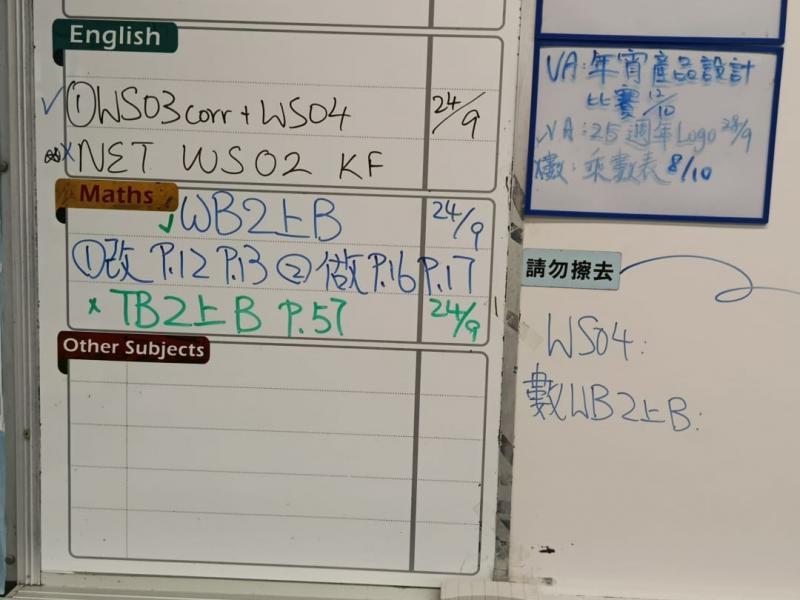 English
①WS03 corr + WS04 24/9
NET WS02 KF
Maths
WB2上B 24/9
①改 P.12 P.13 ②做 P.16 P.17
TB2上B P.57 24/9
Other Subjects
VA:年宵產品設計
比賽 12/10
VA:25週年Logo 28/9
數:乘數表 8/10
請勿擦去
WS04:
數WB2上B: